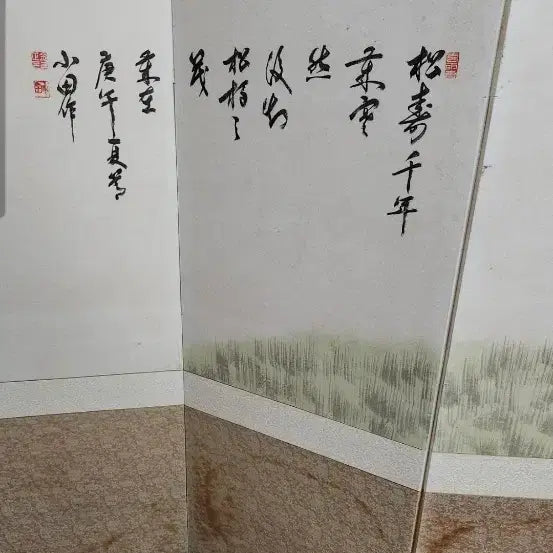 松壽千年
歲寒
然
後知
松柏之
茂
歲在
庚午夏
小田作